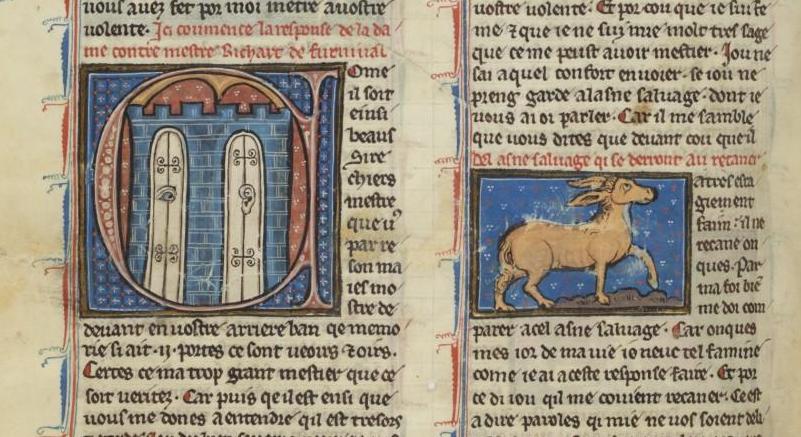 uous auez fet por moi metre a uostre
uolente. Ici commence la response de la da
me contre mestre Richart de furniual
Ome
il soit
einsi
beaus
Sire
chiers
mestre
que u9
par re
son ma
ies mo
stre de
deuant en uostre arriere ban qe memo
rie si ait .ij. portes ce sont ueoirs ⁊ oirs.
Certes ce ma trop grant mestier que ce
soit ueritez. Car puis qe il est ensi que
uous me dones a entendre qil est tresors
uostre uolente. Et por cou que ie sui fe
me ⁊ que ie ne sui mie molt tres sage
que ce me peust auoir mestier. Iou ne
sai a quel confort enuoier. se iou ne
preng garde a lasne saluage. dont ie
uous ai oi parler. Car il me samble
que uous dites que deuant cou que il
Da asne saluage qi se derront au recaner
gie ment
faim. il ne
recane on
ques. Par
ma foi bie
me doi com
parer a cel asne saluage. Car onques
mes ior de ma uie io neuc tel famine
come ie ai a ceste response faire. Et por
ce di iou qil me couient recaner. Ce est
a dire paroles qi mie ne vos soient deli